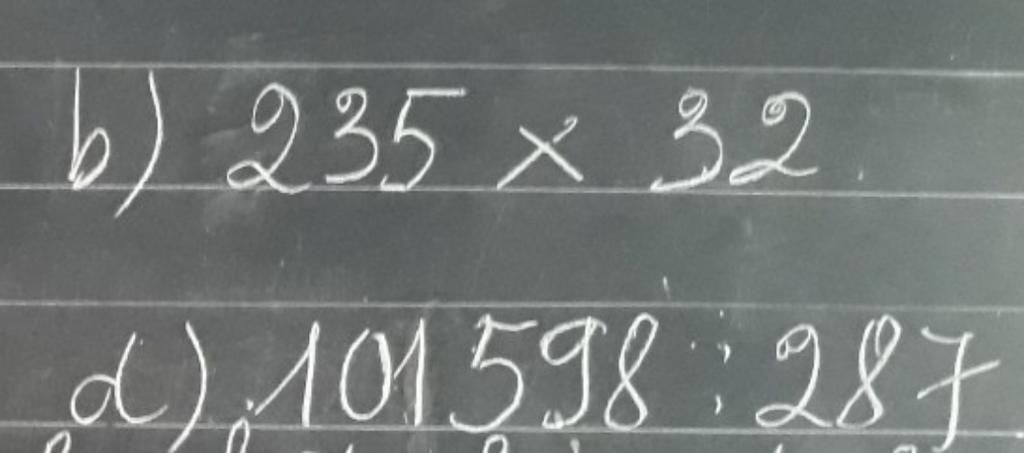 b) 235 × 32
d) 101598 : 287